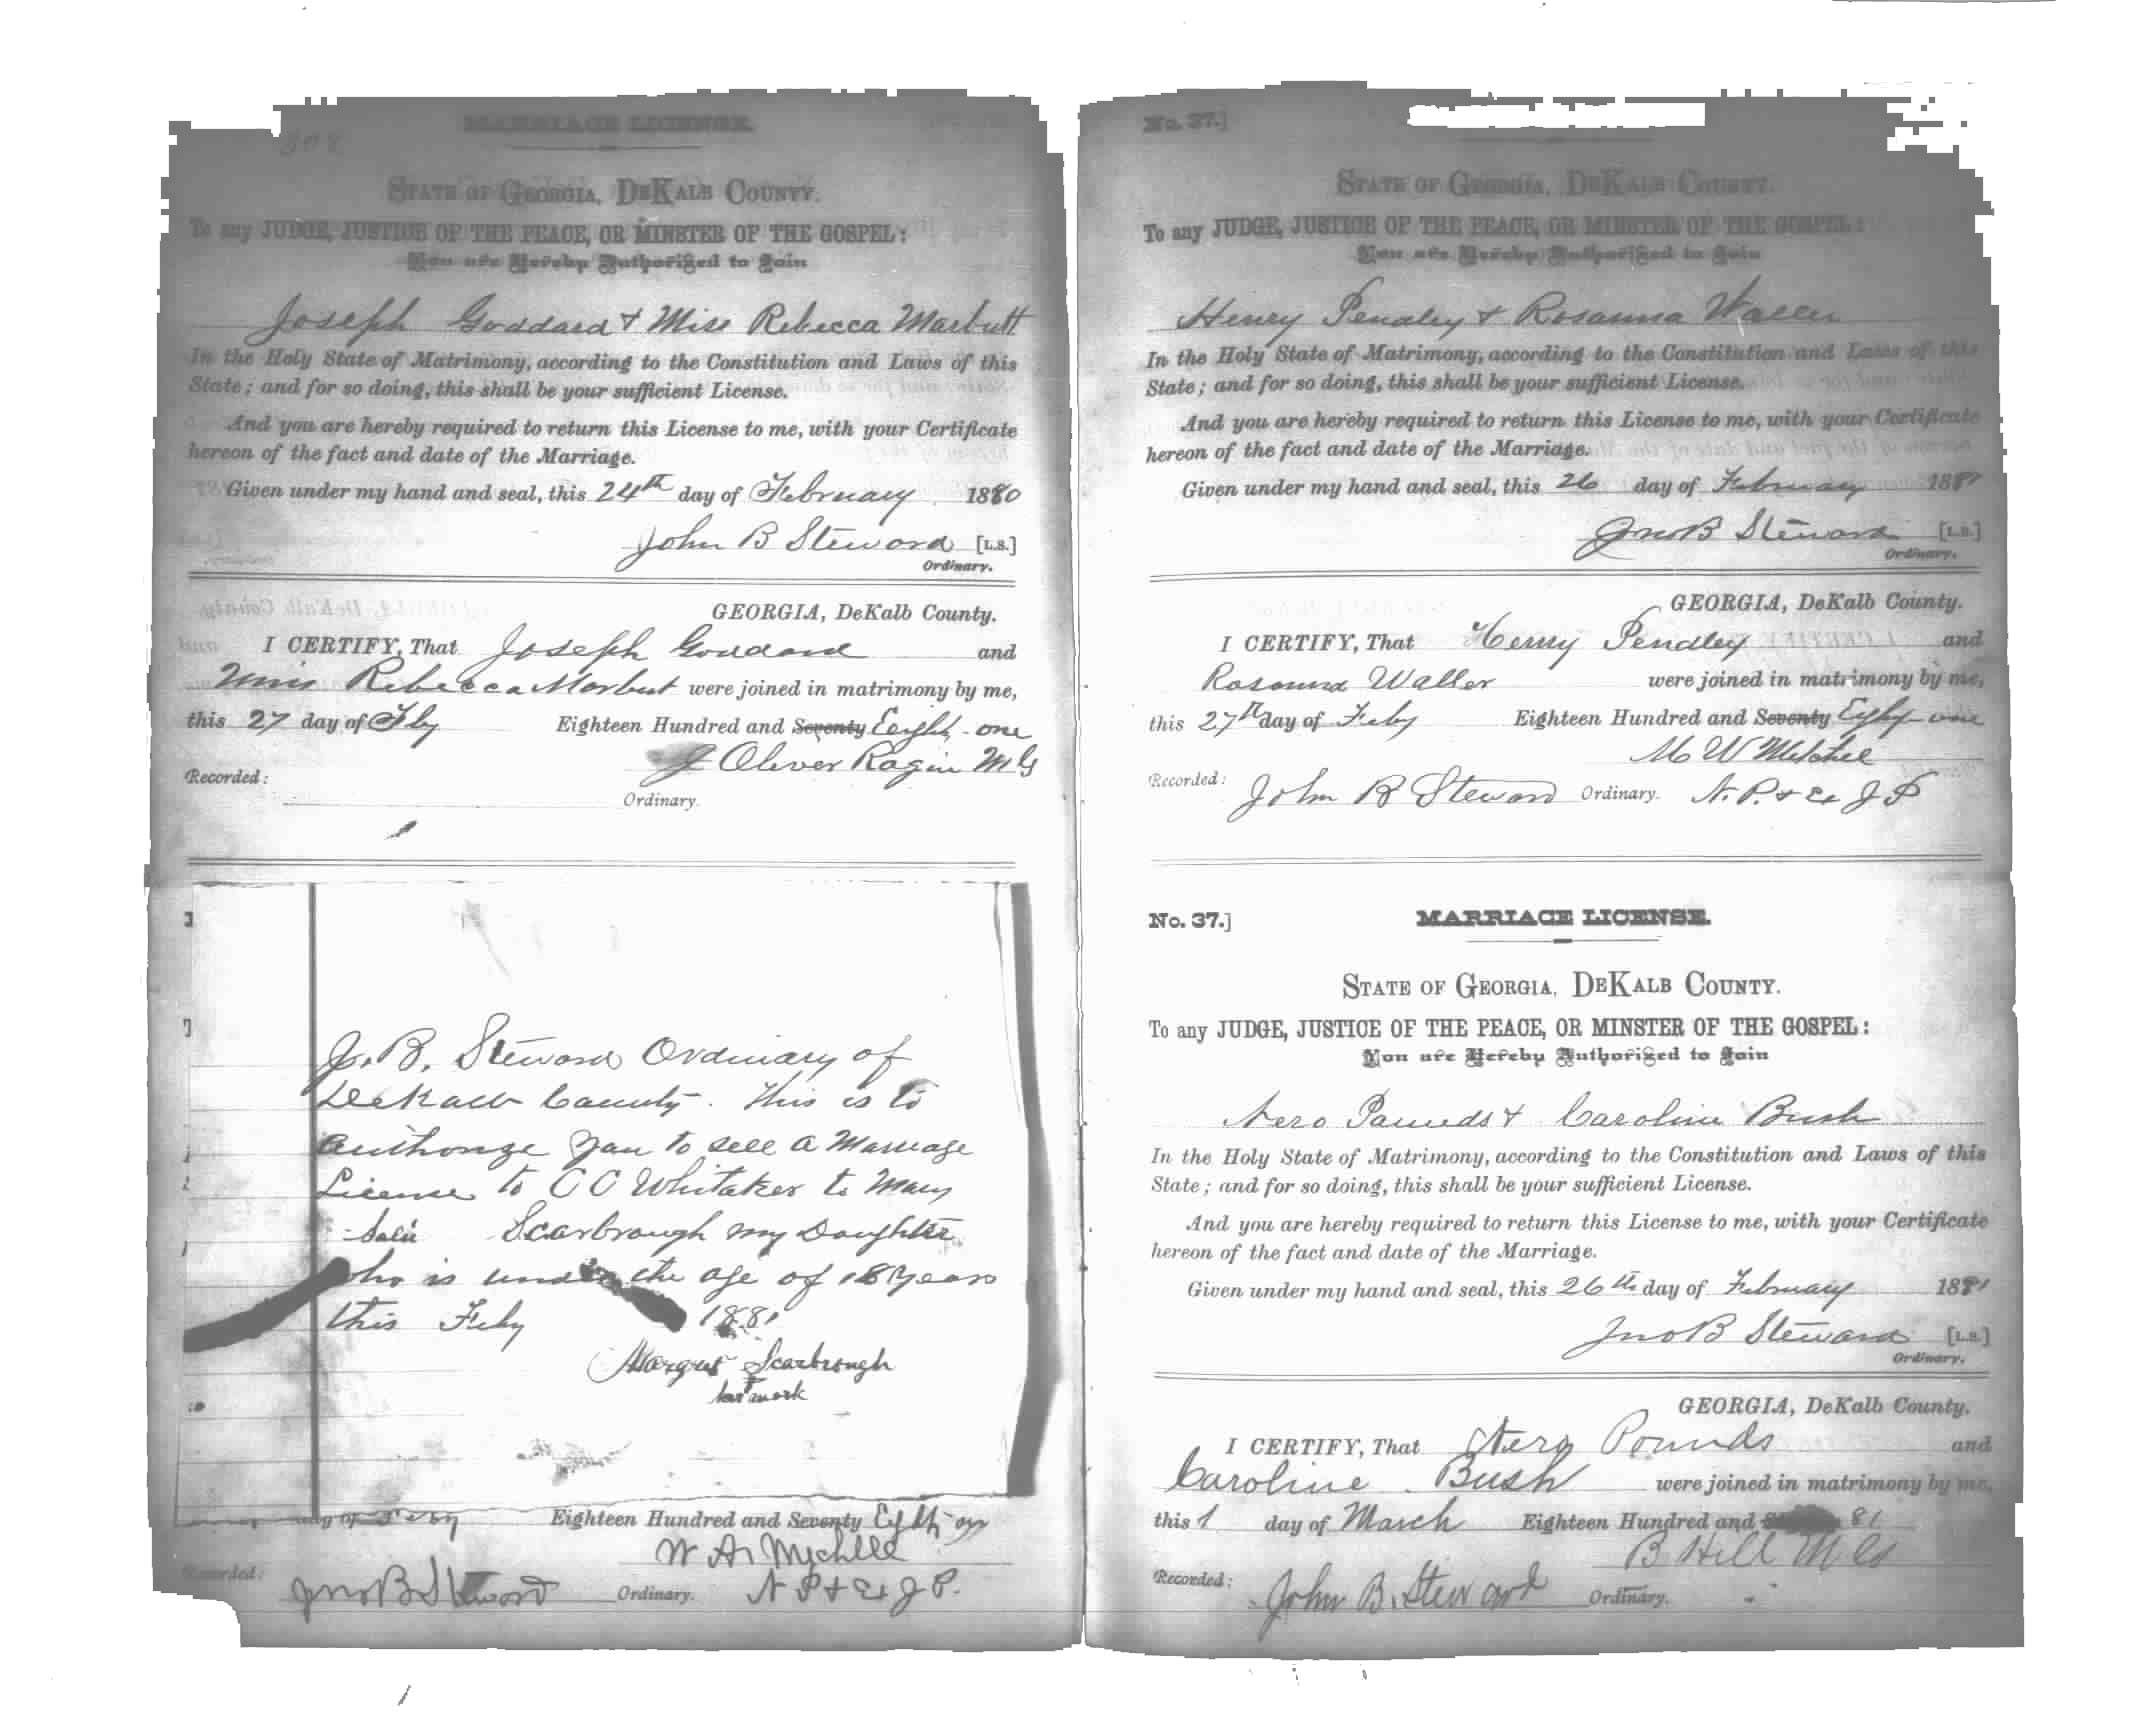 308
MARRIAGE LICENSE.
STATE OF GEORGIA, DEKALB COUNTY.
To any JUDGE, JUSTICE OF THE PEACE, OR MINSTER OF THE GOSPEL:
You are Hereby Authorized to Join
Joseph Goddard & Miss Rebecca Marbutt
In the Holy State of Matrimony, according to the Constitution and Laws of this
State; and for so doing, this shall be your sufficient License.
And you are hereby required to return this License to me, with your Certificate
hereon of the fact and date of the Marriage.
Given under my hand and seal, this 24th day of February 1880
John B Steward [L.S.]
Ordinary.
GEORGIA, DeKalb County.
I CERTIFY, That Joseph Goddard and
Miss Rebecca Marbut were joined in matrimony by me,
this 27 day of Feby Eighteen Hundred and Seventy Eight-one
J Oliver Ragin M G
Recorded:
Ordinary.
J. B. Steward Ordinary of
DeKalb County. This is to
authorize you to sell a Marriage
License to C C Whitaker to Mary
Scarbrough my Daughter
who is under the age of 18 years
this Feby 1881
Margret Scarbrough
her mark
day of Feby Eighteen Hundred and Seventy Eighty on
Recorded:
Jno B Steward Ordinary. N P & Ex J P.
No. 37.]
STATE OF GEORGIA, DEKALB COUNTY.
To any JUDGE, JUSTICE OF THE PEACE, OR MINSTER OF THE GOSPEL:
You are Hereby Authorized to Join
Henry Pendley & Rosanna Waller
In the Holy State of Matrimony, according to the Constitution and Laws of this
State; and for so doing, this shall be your sufficient License.
And you are hereby required to return this License to me, with your Certificate
hereon of the fact and date of the Marriage.
Given under my hand and seal, this 26 day of February 1881
Jno B Steward [L.S.]
Ordinary.
GEORGIA, DeKalb County.
I CERTIFY, That Henry Pendley and
Rosanna Waller were joined in matrimony by me,
this 27th day of Feby Eighteen Hundred and Seventy Eighy-one
M W Mitchel
Recorded: John B Steward Ordinary. N. P. & Ex J P
No. 37.] MARRIAGE LICENSE.
STATE OF GEORGIA, DEKALB COUNTY.
To any JUDGE, JUSTICE OF THE PEACE, OR MINSTER OF THE GOSPEL:
You are Hereby Authorized to Join
Nero Pounds & Caroline Bush
In the Holy State of Matrimony, according to the Constitution and Laws of this
State; and for so doing, this shall be your sufficient License.
And you are hereby required to return this License to me, with your Certificate
hereon of the fact and date of the Marriage.
Given under my hand and seal, this 26th day of February 1881
Jno B Steward [L.S.]
Ordinary.
GEORGIA, DeKalb County.
I CERTIFY, That Nero Pounds and
Caroline Bush were joined in matrimony by me,
this 1 day of March Eighteen Hundred and 81
B Hill M G
Recorded: John B. Steward Ordinary.